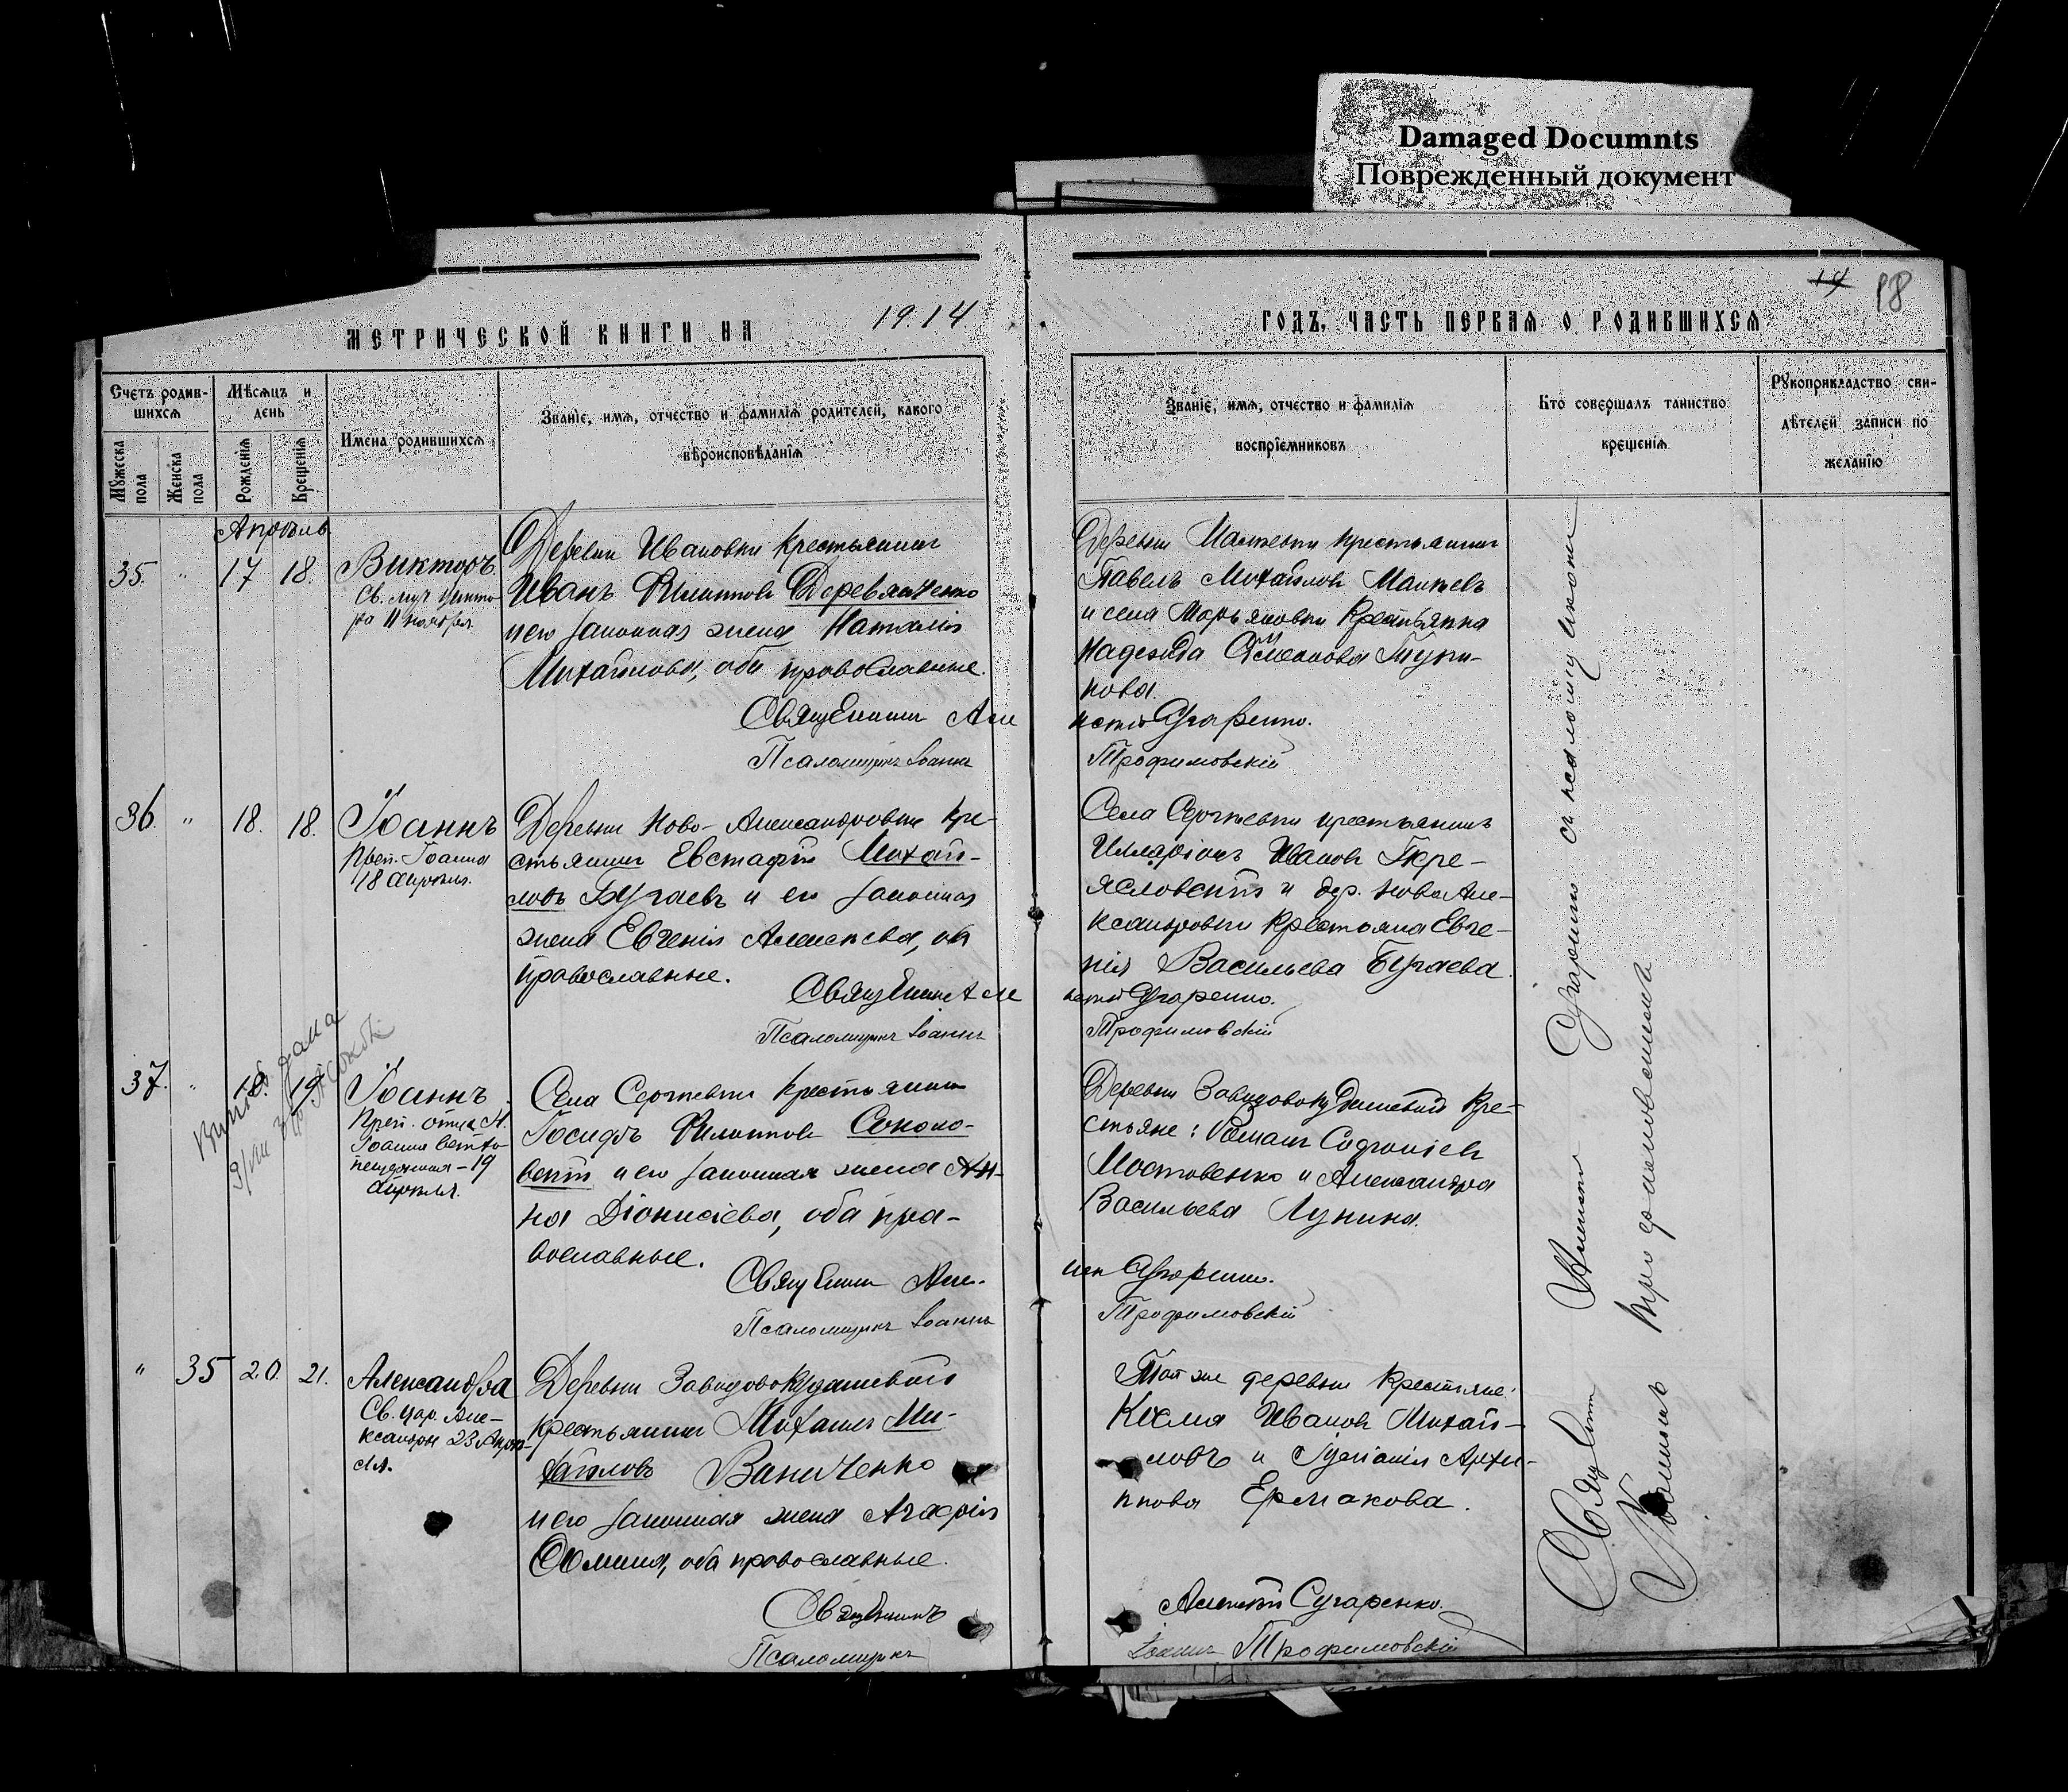 Damaged Documnts
Поврежденный документ
14 18
МЕТРИЧЕСКОЙ КНИГИ НА 1914 ГОДЪ, ЧАСТЬ ПЕРВАЯ О РОДИВШИХСЯ
Счетъ родив-
шихся
Мужеска пола
Женска пола
Мѣсяцъ и
день
Рожденія
Крещенія
Имена родившихся
Званіе, имя, отчество и фамилія родителей, какого
вѣроисповѣданія
Званіе, имя, отчество и фамилія
воспріемниковъ
Кто совершалъ таинство
крещенія
Рукоприкладство сви-
дѣтелей записи по
желанію
Апрѣль
35. " 17 18.
Викторъ
Св. муч. Викто-
ра 11 ноября.
Деревни Ивановки крестьянинъ
Иванъ Филиппов Деревянченко
и его законная жена Наталія
Михайлова, оба православные.
Священникъ Але
Псаломщикъ Іоаннъ
Деревни крестьянинъ
Павелъ Михайловъ
и села Марьяновки крестьянка
Надежда
нова.
ксѣй Сугаренко.
Трофимовскій
36. " 18. 18.
Іоаннъ
Преп. Іоанна
18 апрѣля.
Деревни Ново-Александровки кре-
стьянинъ Евстафій Михай-
ловъ Бугаевъ и его законная
жена Евгенія Алексѣева, оба
православные.
Священникъ Але
Псаломщикъ Іоаннъ
Села Сергѣевки крестьянинъ
Илларіонъ Ивановъ
и дер. Ново Але-
ксандровки крестьянка Евге-
нія Васильева Бугаева.
ксѣй Сугаренко.
Трофимовскій
37. " 18. 19.
Іоаннъ
Преп. отца н.
Іоанна ветхо-
пещерника - 19
апрѣля.
Села Сергѣевки крестьянинъ
Іосифъ Филиппов Соколо-
вскій и его законная жена Ан-
на Діонисіева, оба пра-
вославные.
Священникъ Але-
Псаломщикъ Іоаннъ
Деревни Завидово Кудашевой кре-
стьяне: Романъ Софроніевъ
Мостовенко и Александра
Васильева Лунина.
ксѣй Сугаренко.
Трофимовскій
" 35 20. 21.
Александра
Св. цар. Але-
ксандры 23 Апрѣ-
ля.
Деревни Завидово Кудашевой
крестьянинъ Михаилъ Ми-
хайловъ Ваниченко
и его законная жена Агафія
Фомина, оба православные.
Священникъ
Псаломщикъ
Той же деревни крестьяне:
Косма Ивановъ Михай-
ловъ и Архи-
ппова Ермакова.
Алексѣй Сугаренко.
Іоаннъ Трофимовскій
Священникъ Алексѣй Сугаренко съ псаломщикомъ
Іоанномъ Трофимовскимъ